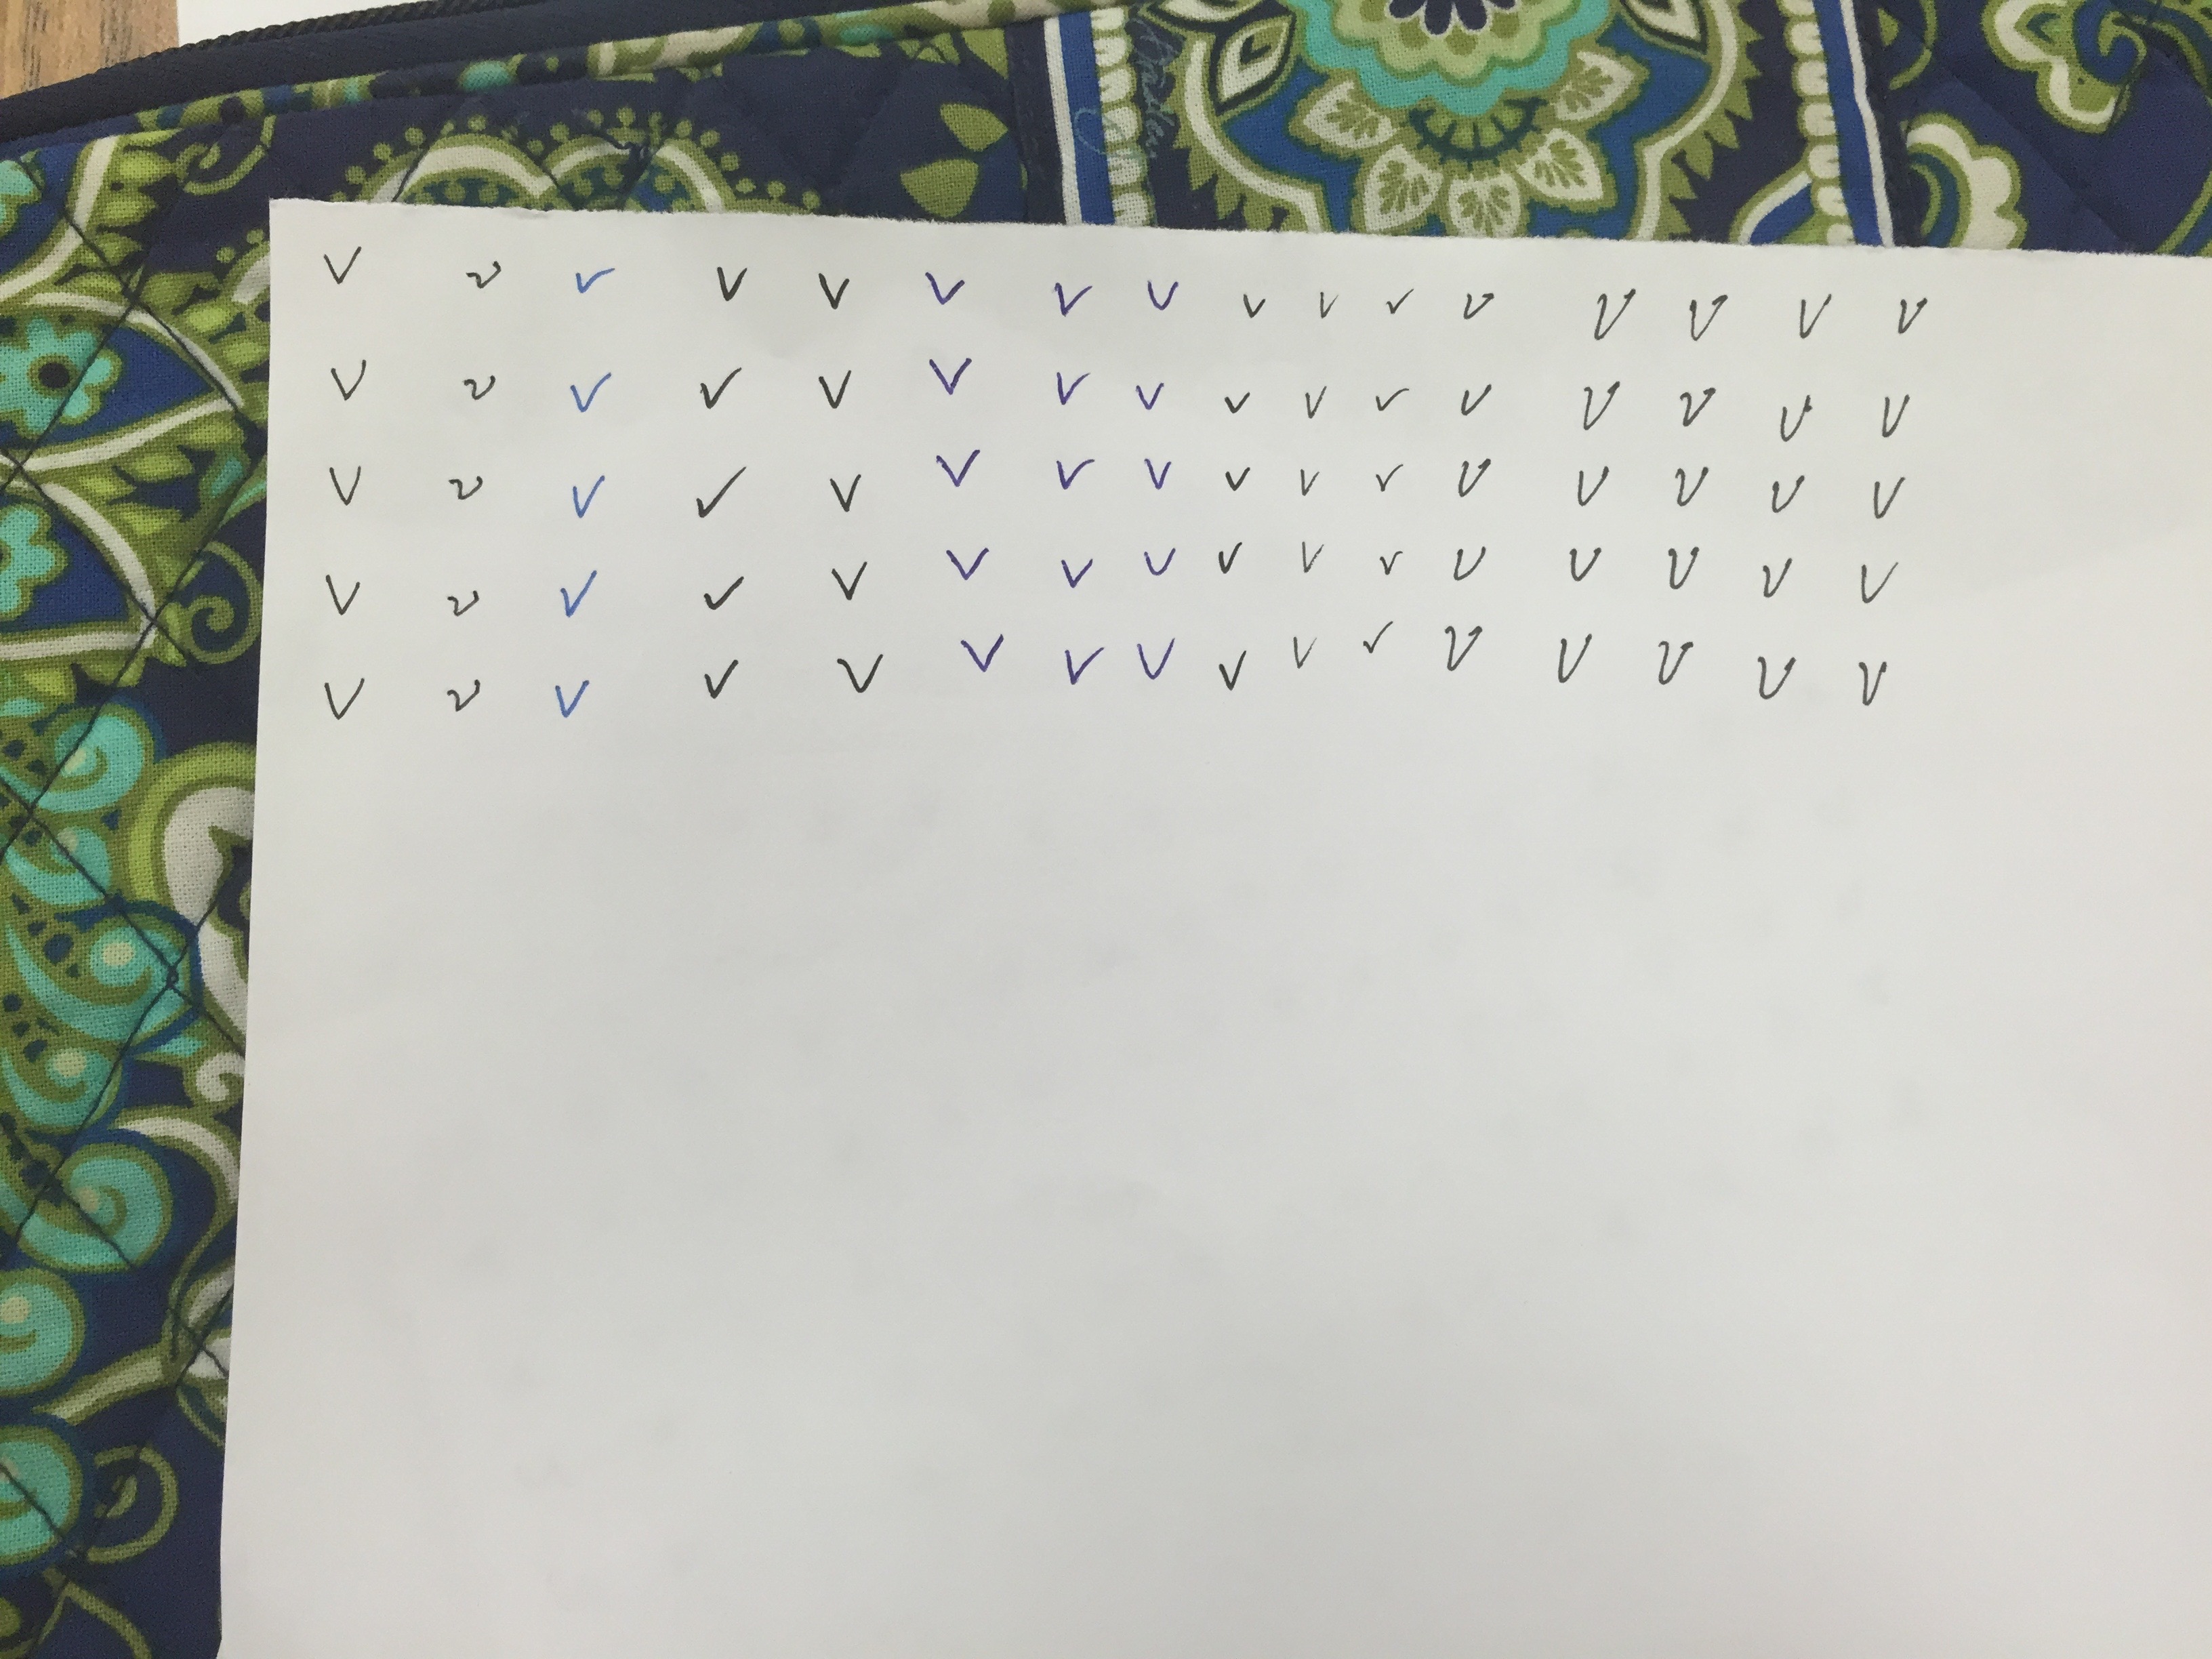 Bradley
v v v v v v v v v v v v v v v v
v v v v v v v v v v v v v v v v
v v v v v v v v v v v v v v v v
v v v v v v v v v v v v v v v v
v v v v v v v v v v v v v v v v